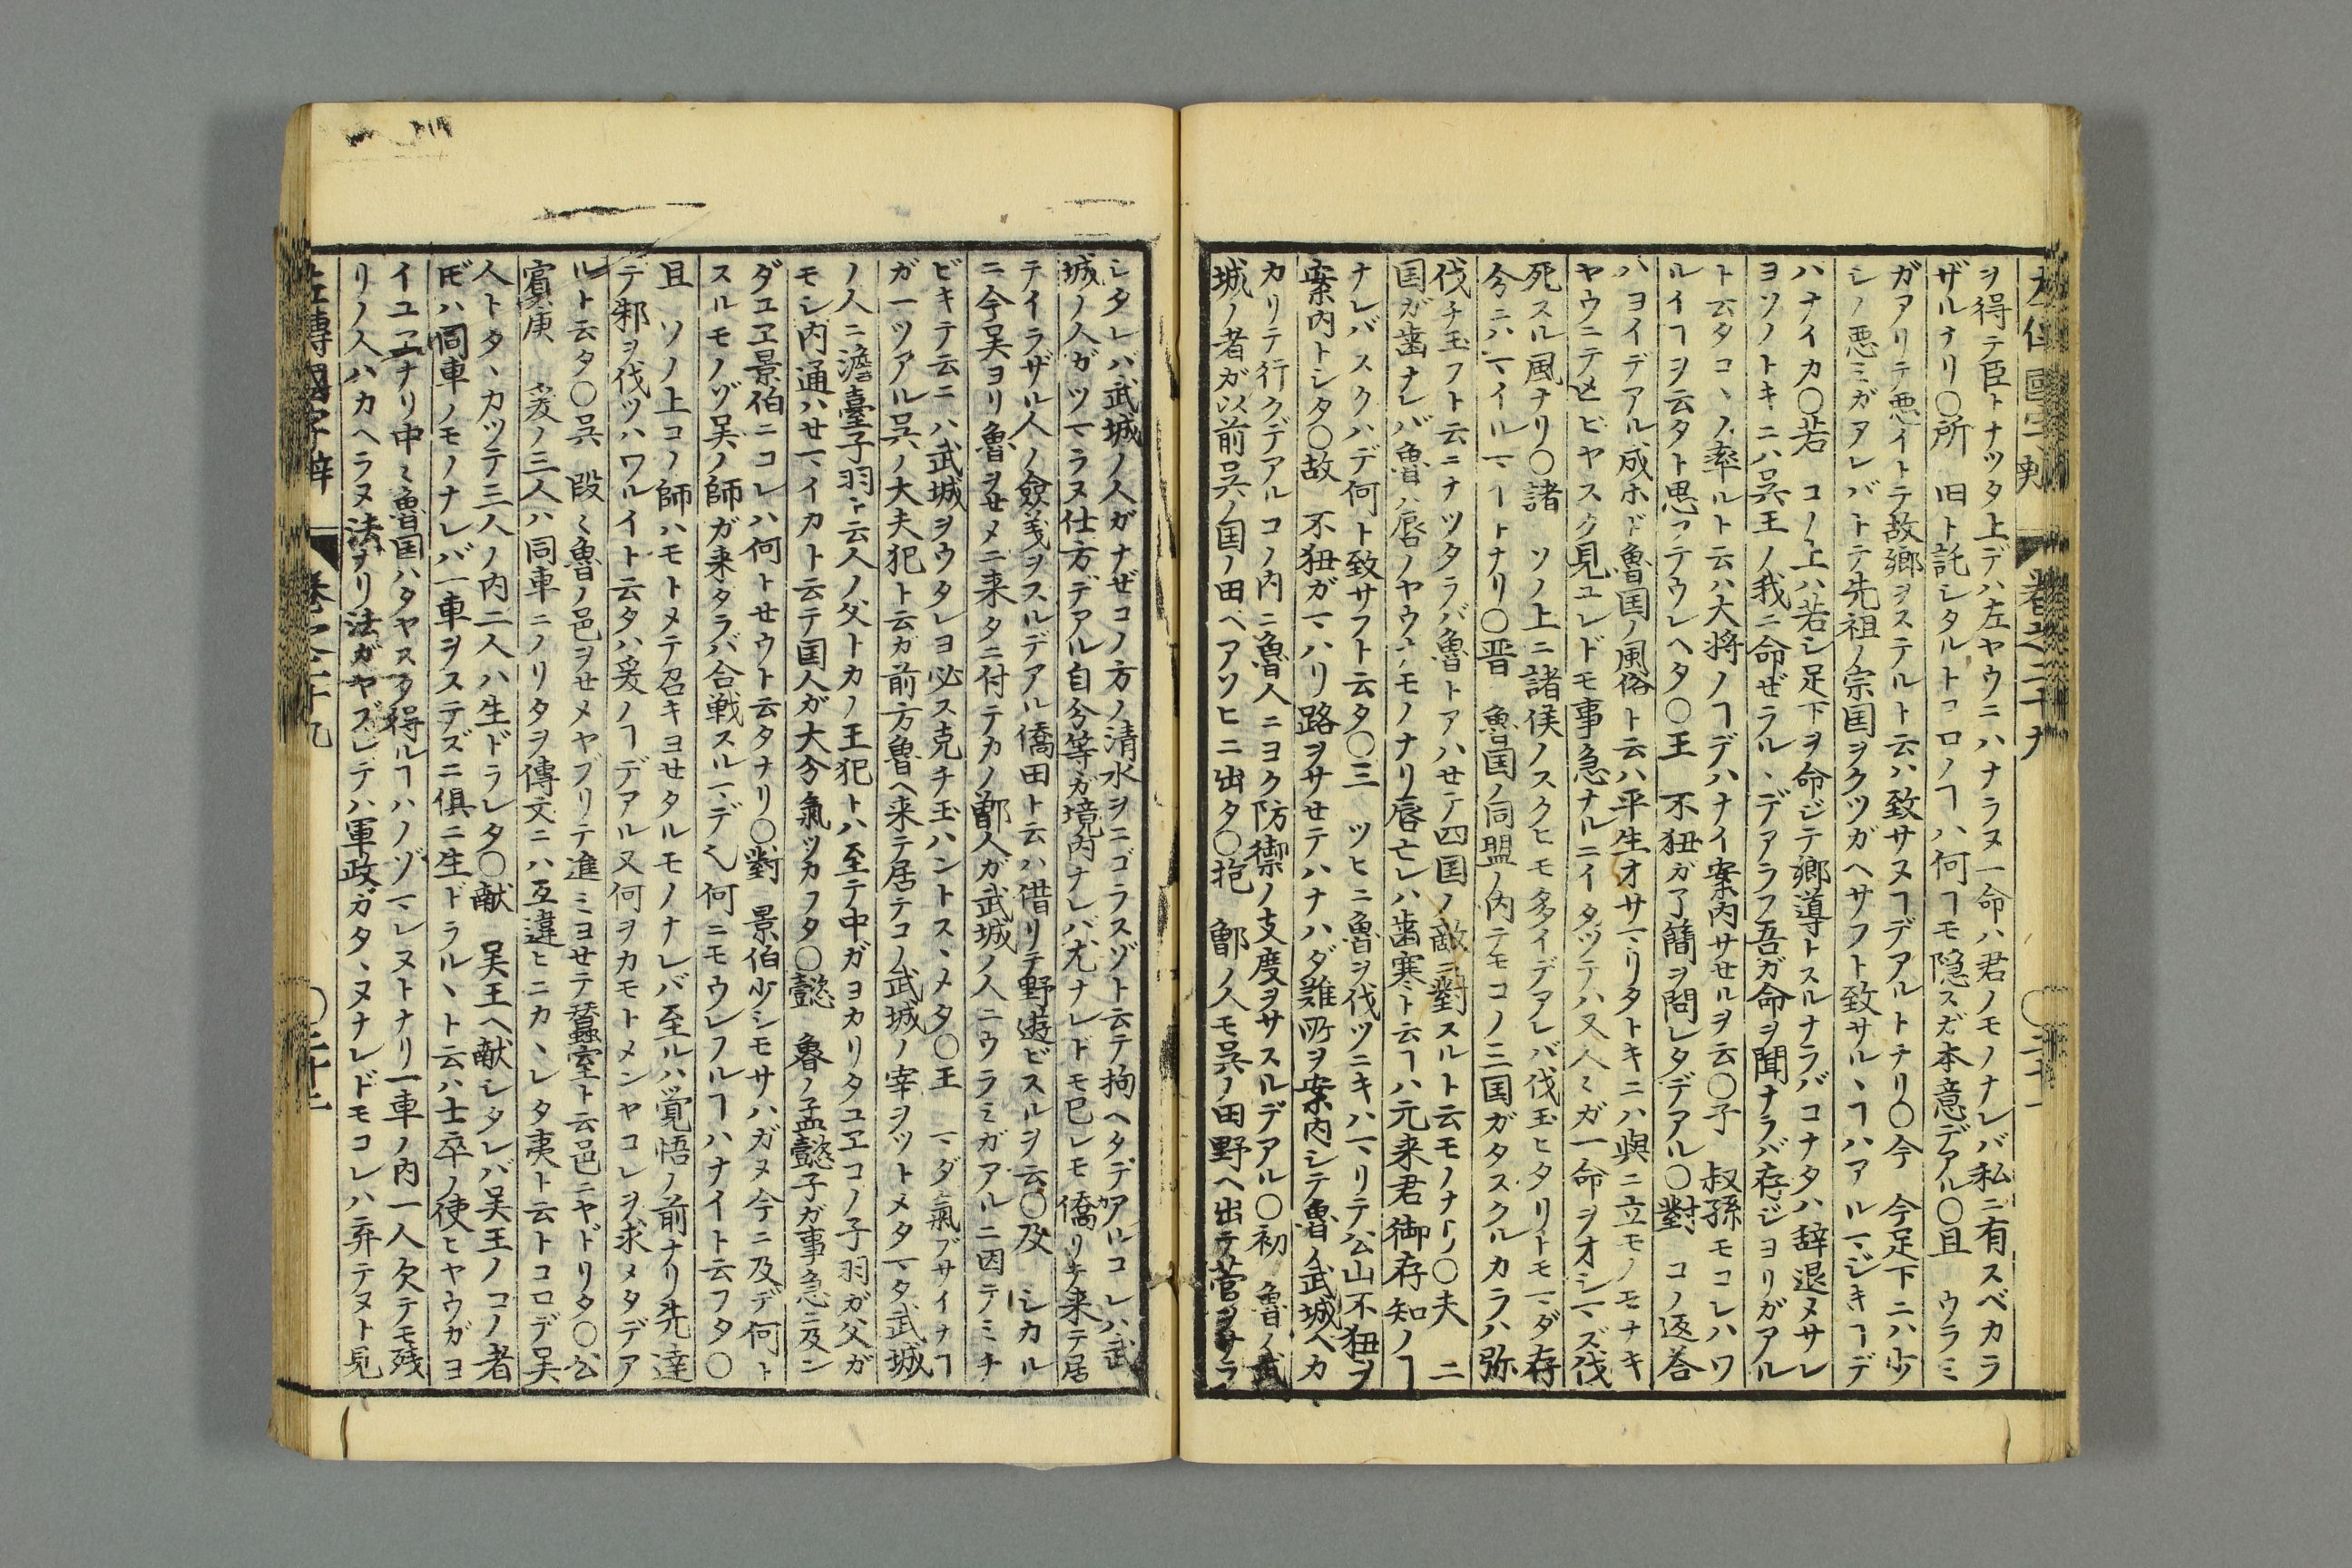 左傳國字辨 巻之二十九 〇三十一
ヲ得テ臣トナツタ上デハ左ヤウニハナラヌ一命ハ君ノモノナレバ私ニ有スベカラ
ザルナリ〇所 旧ト託シタルトコロノヿハ何ヿモ隠スガ本意デアル〇且 ウラミ
ガアリテ悪イトテ故郷ヲステルト云ハ致サヌヿデアルトナリ〇今 今足下ニハ少
シノ悪ミガアレバトテ先祖ノ宗国ヲクツガヘサフト致サルヽヿハアルマジキヿデ
ハナイカ〇若 コノ上ハ若シ足下ヲ命ジテ郷導トスルナラバコナタハ辞退メサレ
ヨソノトキニハ呉王ノ我ニ命ゼラルヽデアラフ吾ガ命ヲ聞ナラバ存ジヨリガアル
ト云タコヽノ率ルト云ハ大将ノヿデハナイ案内サセルヲ云〇子 叔孫モコレハワ
ルイヿヲ云タト思フテウレヘタ〇王 不狃ガ了簡ヲ問レタデアル〇對 コノ返答
ハヨイデアル成ホド魯国ノ風俗ト云ハ平生オサマリタトキニハ與ニ立モノモナキ
ヤウニテヒビヤスク見ユレドモ事急ナルニイタツテハ又人ミガ一命ヲオシマズ伐
死スル風ナリ〇諸 ソノ上ニ諸侯ノスクヒモ多イデアレバ伐玉ヒタリトモマダ存
分ニハマイルマヿトナリ〇晋 魯国ノ同盟ノ内テモコノ三国ガタスクルカラハ弥
伐チ玉フト云ニナツタラバ魯トアハセテ四国ノ敵ニ對スルト云モノナリ〇夫 二
国ガ歯ナレバ魯ハ唇ノヤウナモノナリ唇亡レハ歯寒ト云ヿハ元来君御存知ノヿ
ナレバスクハデ何ト致サフト云タ〇三 ツヒニ魯ヲ伐ツニキハマリテ公山不狃ヲ
案内トシタ〇故 不狃ガマハリ路ヲサセテハナハダ難所ヲ案内シテ魯ノ武城ヘカ
カリテ行クデアルコノ内ニ魯人ニヨク防禦ノ支度ヲサスルデアル〇初 魯ノ武
城ノ者ガ以前呉ノ国ノ田ヘアソヒニ出タ〇拘 鄫ノ人モ呉ノ田野ヘ出テ菅ヲサラ
シタレバ武城ノ人ガナゼコノ方ノ清水ヲニゴラスゾト云テ拘ヘタデアルコレハ武
城ノ人ガツマラヌ仕方デアル自分等ガ境内ナレバ尤ナレドモ已レモ僑リテ来テ居
テイラザル人ノ僉義ヲスルデアル僑田ト云ハ借リテ野遊ビスルヲ云〇及 シカル
ニ今呉ヨリ魯ヲセメニ来タニ付テカノ鄫人ガ武城ノ人ニウラミガアルニ因テミチ
ビキテ云ニハ武城ヲウタレヨ必ス克チ玉ハントスヽメタ〇王 マダ氣ヅサイナヿ
ガ一ツアル呉ノ大夫犯ト云ガ前方魯ヘ来テ居テコノ武城ノ宰ヲツトメタマタ武城
ノ人ニ澹臺子羽ト云人ノ父トカノ王犯トハ至テ中ガヨカリタユヱコノ子羽ガ父ガ
モシ内通ハセマイカト云テ国人ガ大分氣ヅカフタ〇懿 魯ノ孟懿子ガ事急ニ及ン
ダユヱ景伯ニコレハ何トセウト云タナリ〇對 景伯少シモサハガヌ今ニ及デ何ト
スルモノゾ呉ノ師ガ来タラバ合戦スルマデヘ何ニモウレフルヿハナイト云フタ〇
且 ソノ上コノ師ハモトメテ召キヨセタルモノナレバ至ルハ覚悟ノ前ナリ先達
テ邾ヲ伐ツハワルイト云タハ爰ノヿデアル又何ヲカモトメンヤコレヲ求メタデア
ルト云タ〇呉 段ミ魯ノ邑ヲセメヤブリテ進ミヨセテ蠶室ト云邑ニヤドリタ〇公
賓庚 爰ノ三人ハ同車ニノリタヲ傳文ニハ互違ヒニカヽレタ夷ト云トコロデ呉
人トタヽカツテ三人ノ内二人ハ生ドラレタ〇献 呉王ヘ献シタレバ呉王ノコノ者
𪜈ハ同車ノモノナレバ一車ヲステズニ俱ニ生ドラルヽト云ハ士卒ノ使ヒヤウガヨ
イユヱナリ中ミ魯国ハタヤスク得ルヿハノゾマレヌトナリ一車ノ内一人欠テモ残
リノ人ハカヘラヌ法ヲリ法ガヤズレデハ軍政ガタヽヌナレドモコレハ弃テヌト見
左傳國字辨 巻之二十九 〇三十二